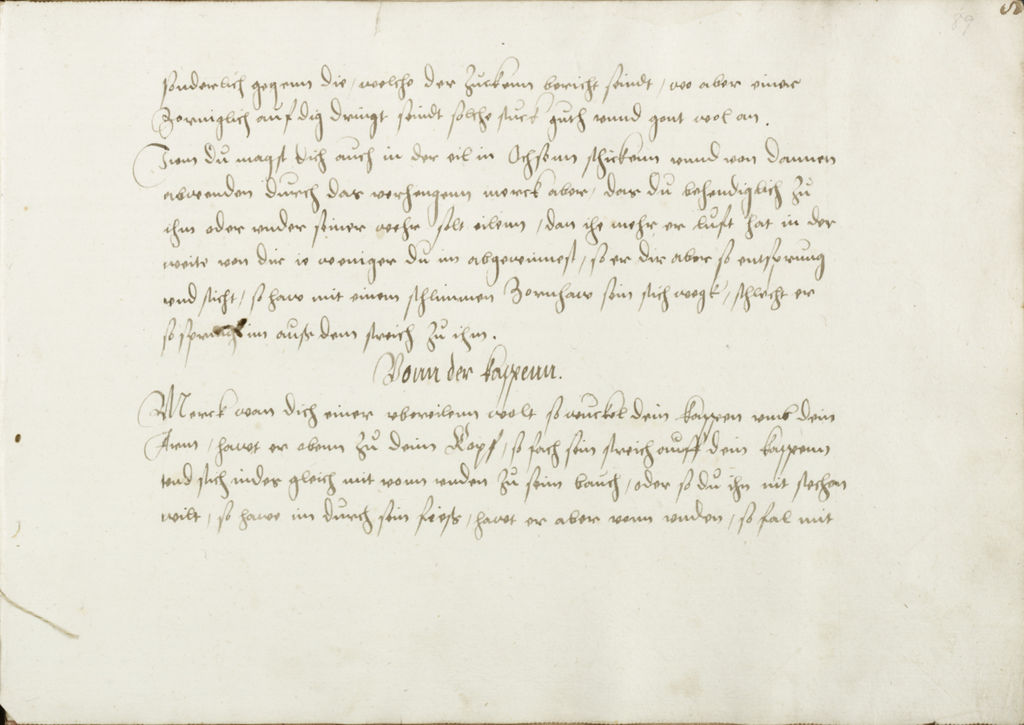 89
sonderlich gegenn die, welche der Zuckenn bericht seindt, wo aber einer
Zorniglich auf dig dringt seindt solche stuck guth vnnd gent wol an.
Item du magst dich auch in der eil in Ochsenn schickenn vnnd von dannen
abwenden durch das verhengenn merck aber, das du behendiglich zu
ihm oder vnder seiner wehr solt eilenn, dan ihe mehr er lufft hat in der
weite von dir ie weniger du im abgewinnest, so er dir aber so entsprung
vnd sticht, so haw mit einem schlimmen Zornhaw sein stich wegk, schlecht er
so spring im auß dem streich zu ihm.
Vonn der kappenn.
Merck wan dich einer vbereilenn wolt so wuckel dein kappen vmb dein
Arm, hawt er obenn zu deim Kopf, so fach sein streich auff dein kappenn
vnd stich indes gleich mit vonn vnden zu seim bauch, oder so du ihn nit stechen
wilt, so hawe im durch sein fieß, hawt er aber vonn vnden, so fal mit